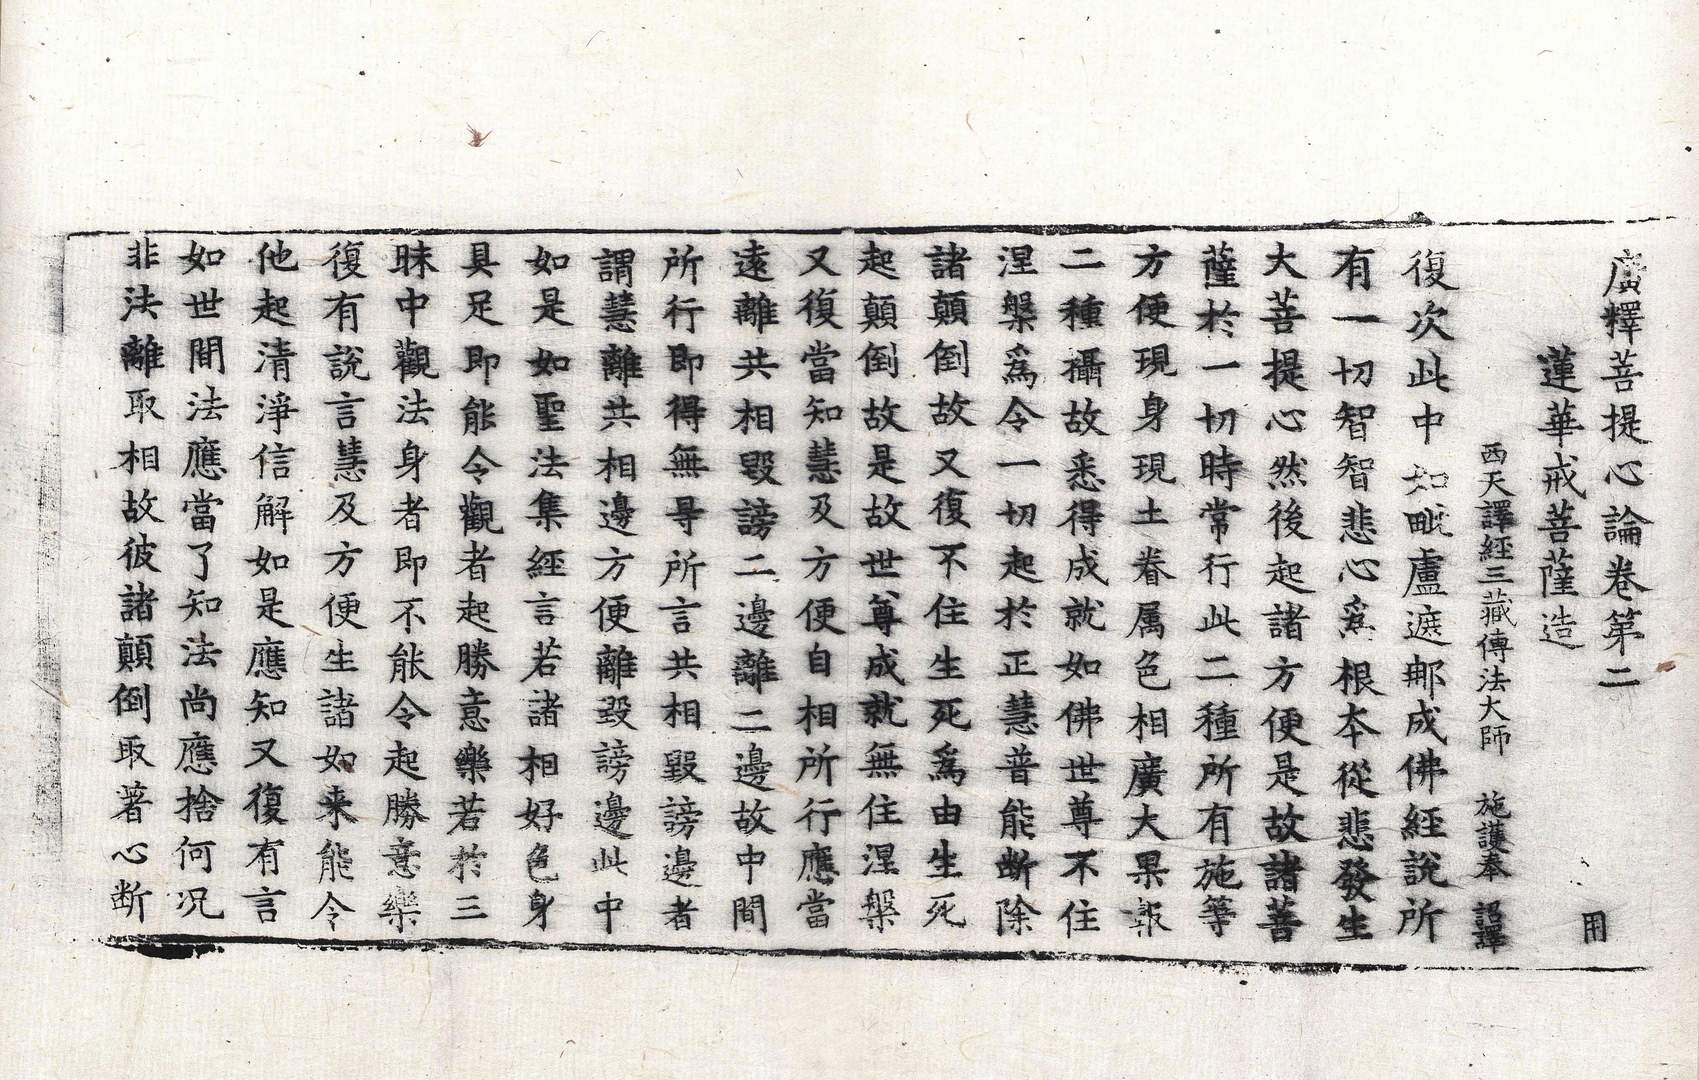 廣釋菩提心論卷第二 用
蓮華戒菩薩造
西天譯經三藏傳法大師 施護奉 詔譯
復次此中如毗盧遮那成佛經說所
有一切智智悲心爲根本從悲發生
大菩提心然後起諸方便是故諸菩
薩於一切時常行此二種所有施等
方便現身現土眷属色相廣大果報
二種攝故悉得成就如佛世尊不住
涅槃爲令一切起於正慧普能断除
諸顛倒故又復不住生死爲由生死
起顛倒故是故世尊成就無住涅槃
又復當知慧及方便自相所行應當
遠離共相毀謗二邊離二邊故中間
所行即得無㝵所言共相毀謗邊者
謂慧離共相邊方便離毀謗邊此中
如是如聖法集經言若諸相好色身
具足即能令觀者起勝意樂若於三
昧中觀法身者即不能令起勝意樂
復有說言慧及方便生諸如来能令
他起清淨信解如是應知又復有言
如世間法應當了知法尚應捨何况
非法離取相故彼諸顛倒取著心断